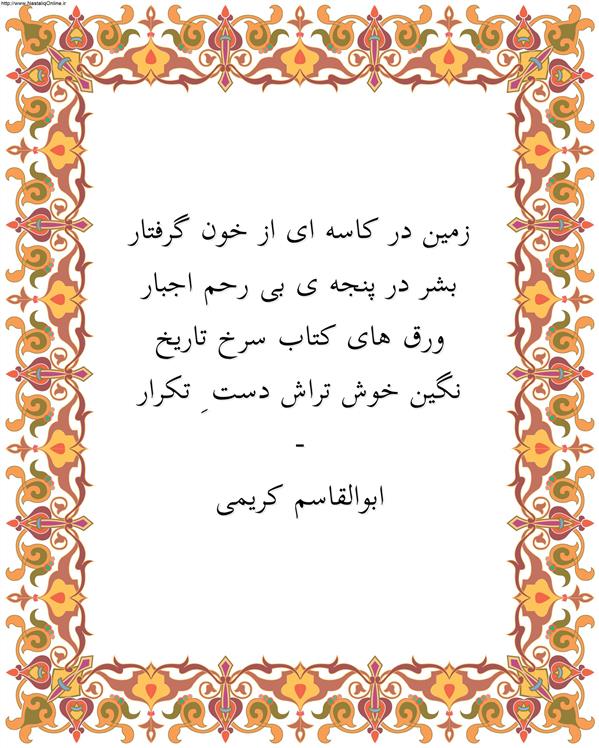 http://www.NastaliqOnline.ir
زمین در کاسه ای از خون گرفتار
بشر در پنجه ی بی رحم اجبار
ورق های کتاب سرخ تاریخ
نگین خوش تراش دست ِ تکرار
-
ابوالقاسم کریمی